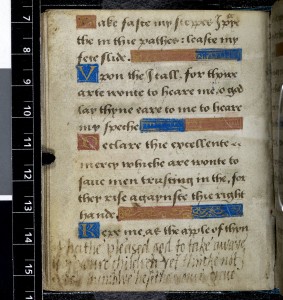 Make faste my steppes I pre
the in thie pathes: leaste my
fete slide.
Vpon the I call, for thou
arte wonte to heare me, o god
lay thyne eare to me to heare
my speche
Declare thie excellente
mercy whiche are wonte to
saue men trusting in the, for
they rise agaynste thie right
hande.
Kepe me, as the aple of thyn
hathe pleased god to take
of youre children yet thinke not
7
8
9
10
11
12
13
14
15